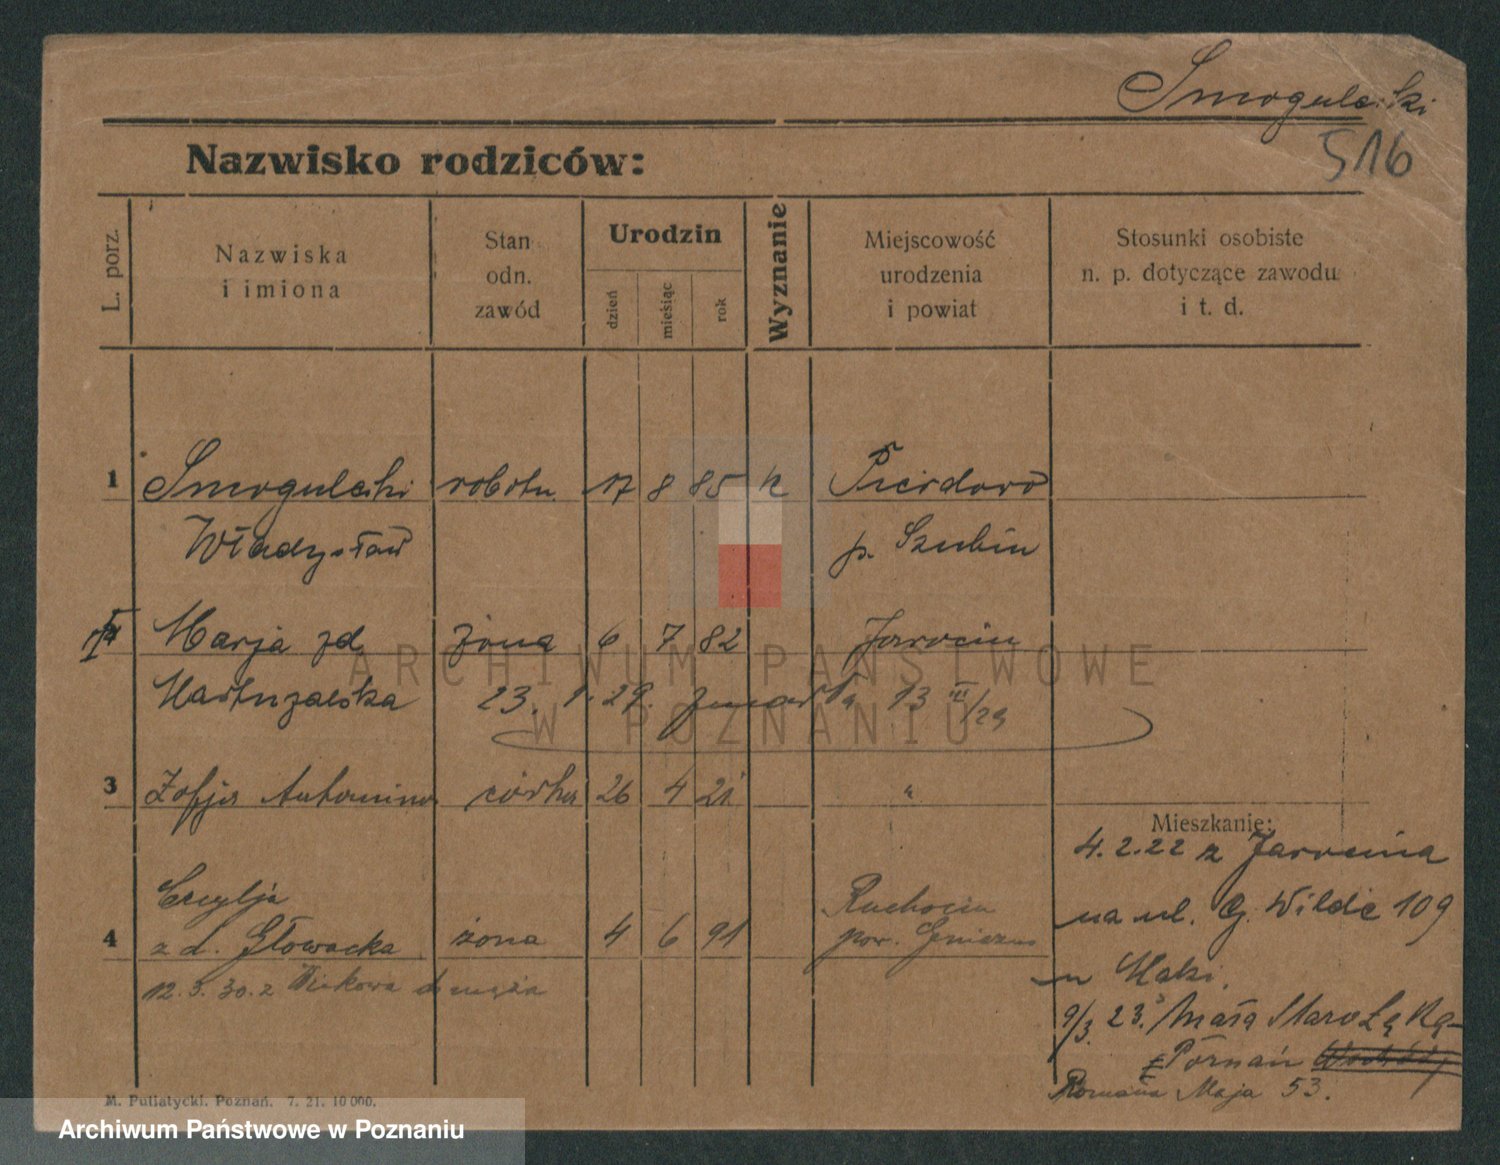 Smogulecki
516
Nazwisko rodziców:
L. porz.
Nazwiska
i imiona
Stan
odn.
zawód
Urodzin
dzień
miesiąc
rok
Wyznanie
Miejscowość
urodzenia
i powiat
Stosunki osobiste
n. p. dotyczące zawodu
i t. d.
1 Smogulecki robotn. 17 8 85 k
Władysław p. Szubin
Marja zd. żona 6 7 82 Jarocin
23. 1. 29. zmarła 13 III/29
3 Zofja Antonina córka 26 4 21 "
Mieszkanie:
4.2.22 z Jarocina
na ul. G. Wilde 109
Ruchocin
4 z d. Głowacka żona 4 6 91 pow. Gniezno
12. 5. 30. z męża
9/3. 23. Mała Starołęka
Poznań
Romana Maja 53.
M. Putiatycki. Poznań. 7. 21. 10 000.
ARCHIWUM PAŃSTWOWE
W POZNANIU
Archiwum Państwowe w Poznaniu